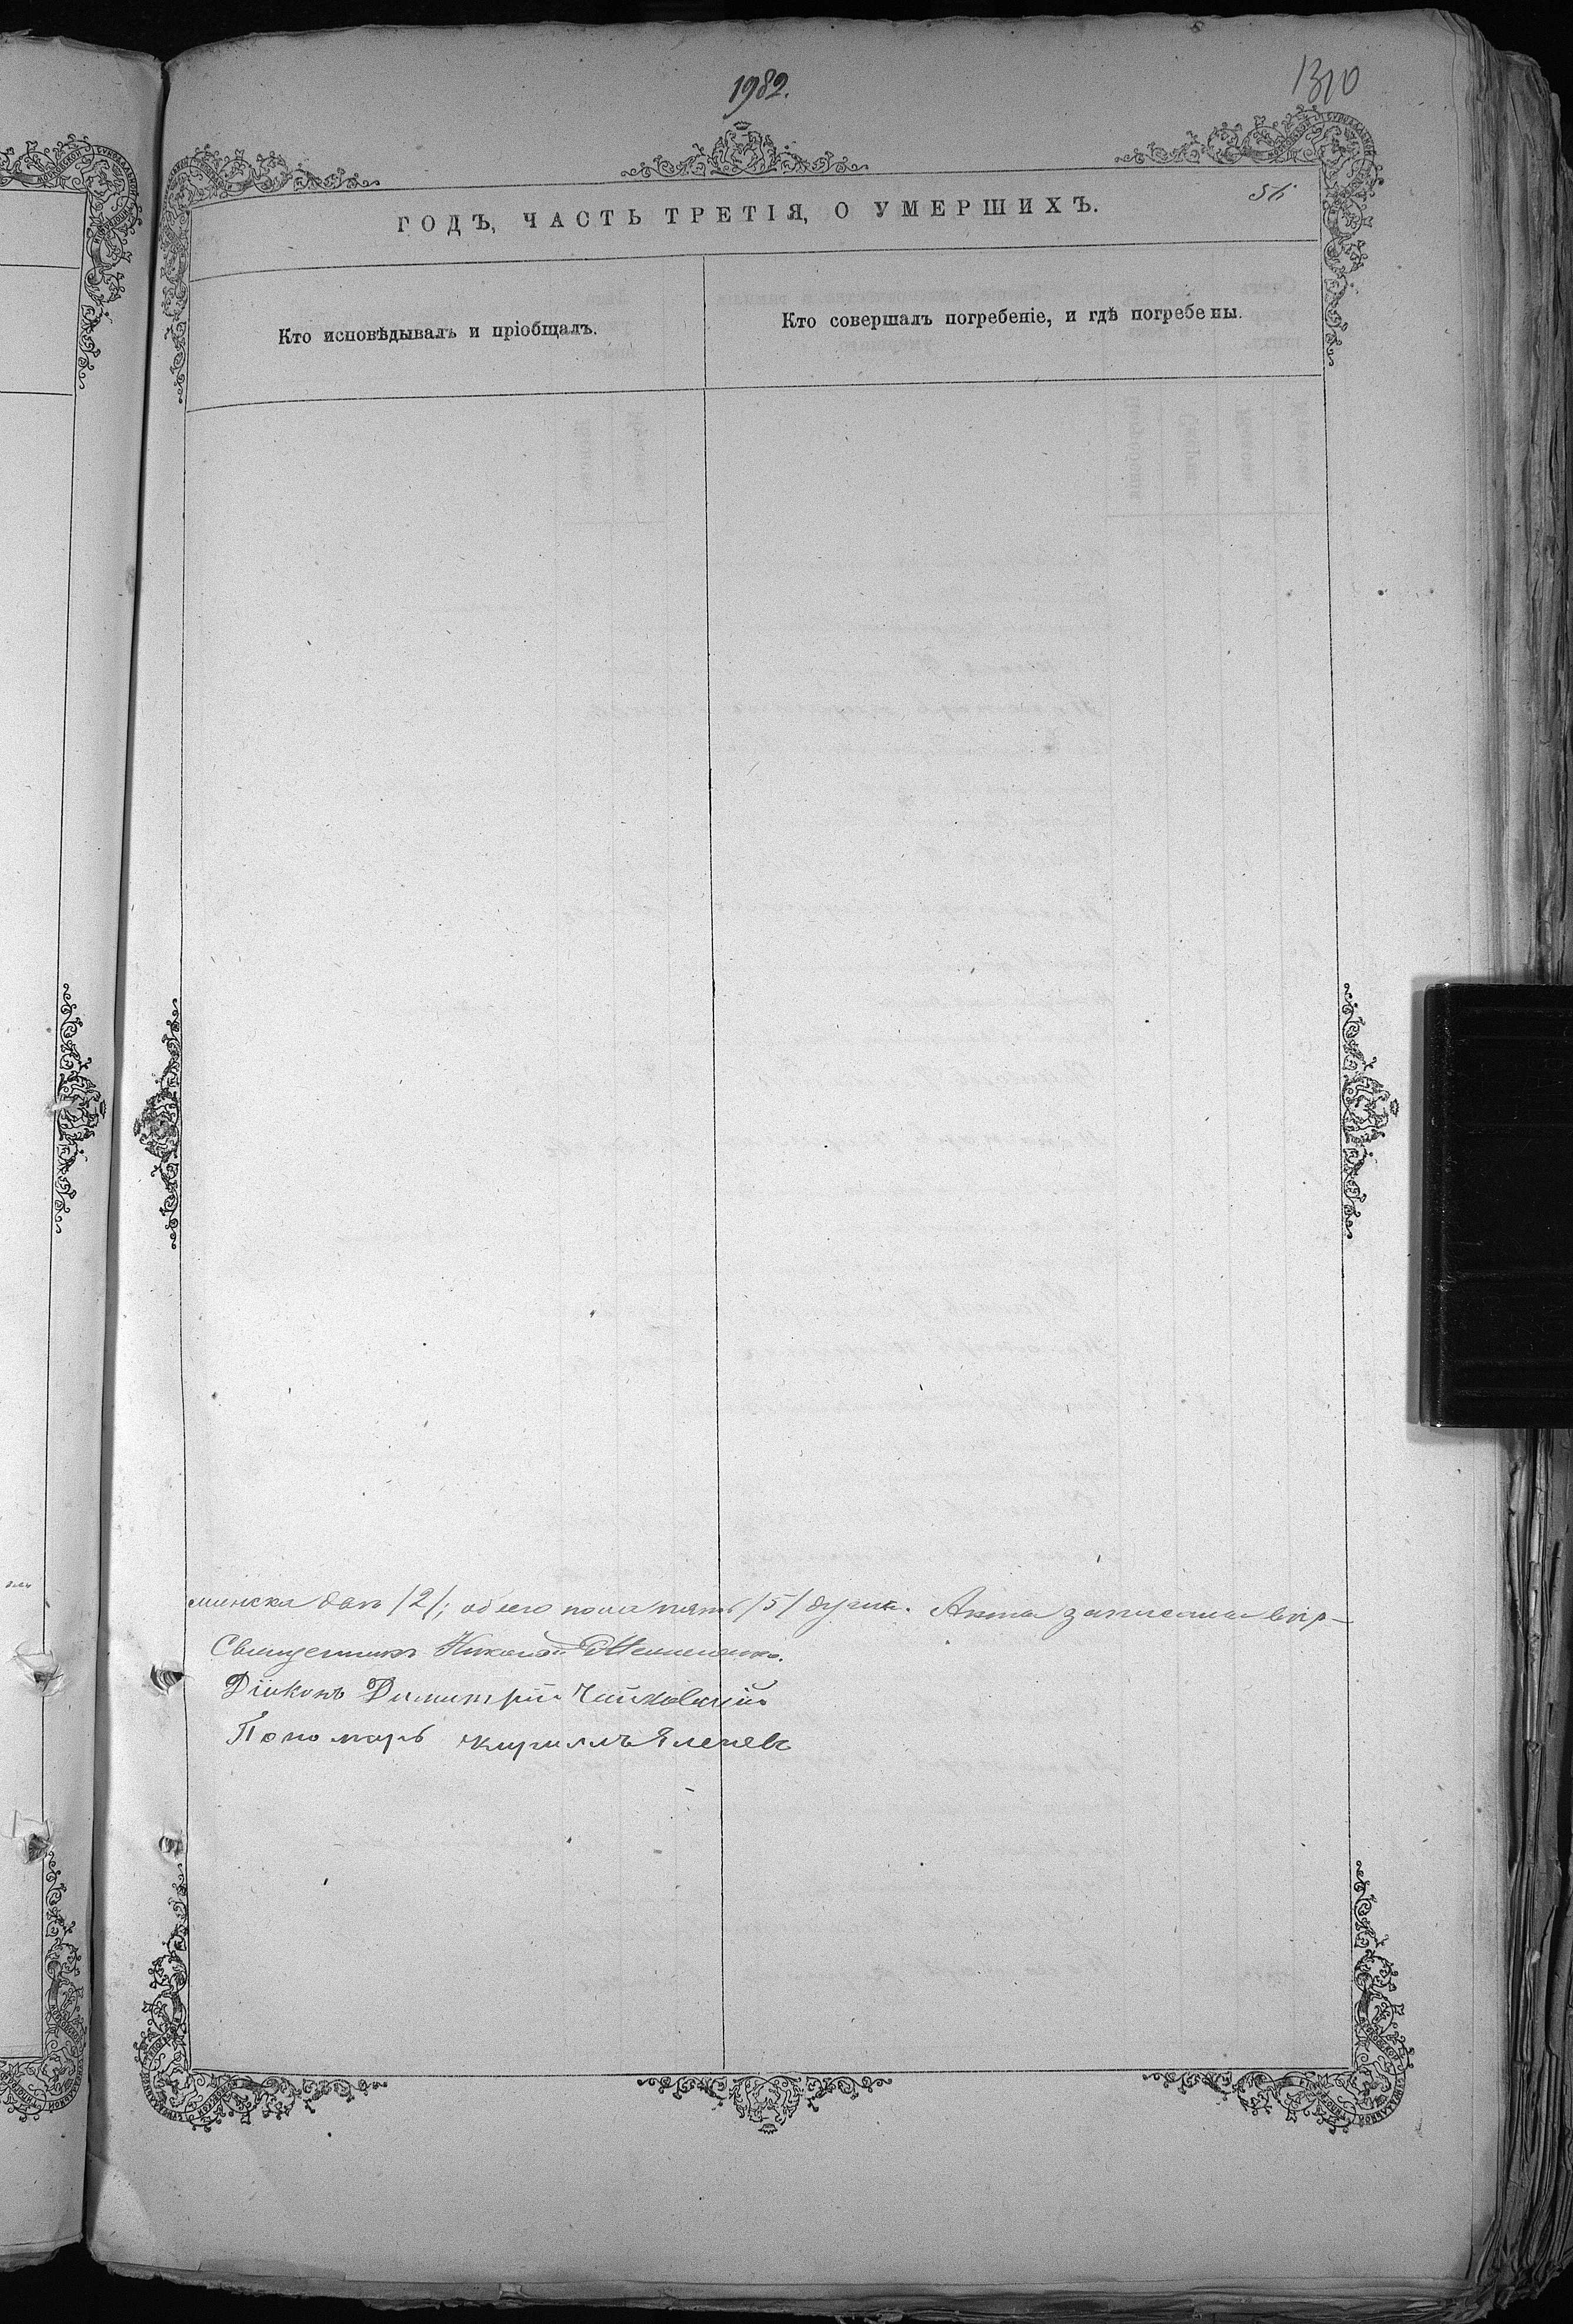 1982.
1310
56
ГОДЪ, ЧАСТЬ ТРЕТІЯ, О УМЕРШИХЪ.
Кто исповѣдывалъ и пріобщалъ.
Кто совершалъ погребеніе, и гдѣ погребены.
женска два /2/; обоего пола пять /5/ душъ. Акты записаны
Священникъ Николай
Діяконъ Димитрій Чайковскій
Пономарь Кириллъ